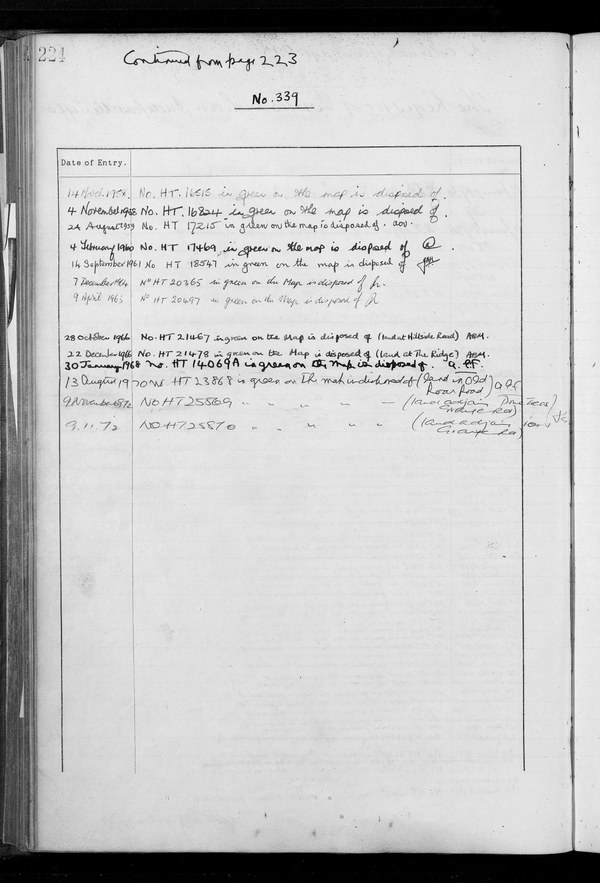 224
Continued from page 223
No. 339
Date of Entry.
14 March 1958. No. HT. 16515 in green on the map is disposed of.
4 November 1958 No. HT. 16824 in green on the map is disposed of.
24 August 1959 No. HT 17215 in green on the map is disposed of.
4 February 1960 No. HT 17469 in green on the map is disposed of
14 September 1961 No HT 18547 in green on the map is disposed of
7 December 1964 No HT 20365 in green on the Map is disposed of
9 April 1965 No HT 20497 in green on the Map is disposed of
28 October 1966 No. HT 21467 in green on the Map is disposed of (land at Hillside Road)
22 December 1966 No. HT 21478 in green on the Map is disposed of (land at The Ridge)
30 January 1968 No. HT 14069A is green on the map is disposed of.
13 August 1970 No HT 23868 is green on the map is disposed of (land in Old
Roar Road)
9 November 1972 No HT 25869 " " " " — (land adjoin
Grange Rd)
9.11.72 No HT 25870 " " " " (land adjoin
Grange Rd)